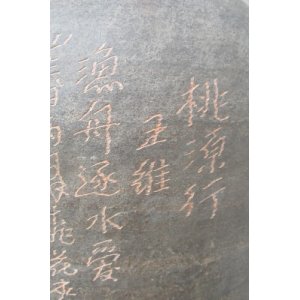 桃源行
王維
漁舟逐水愛
花夾